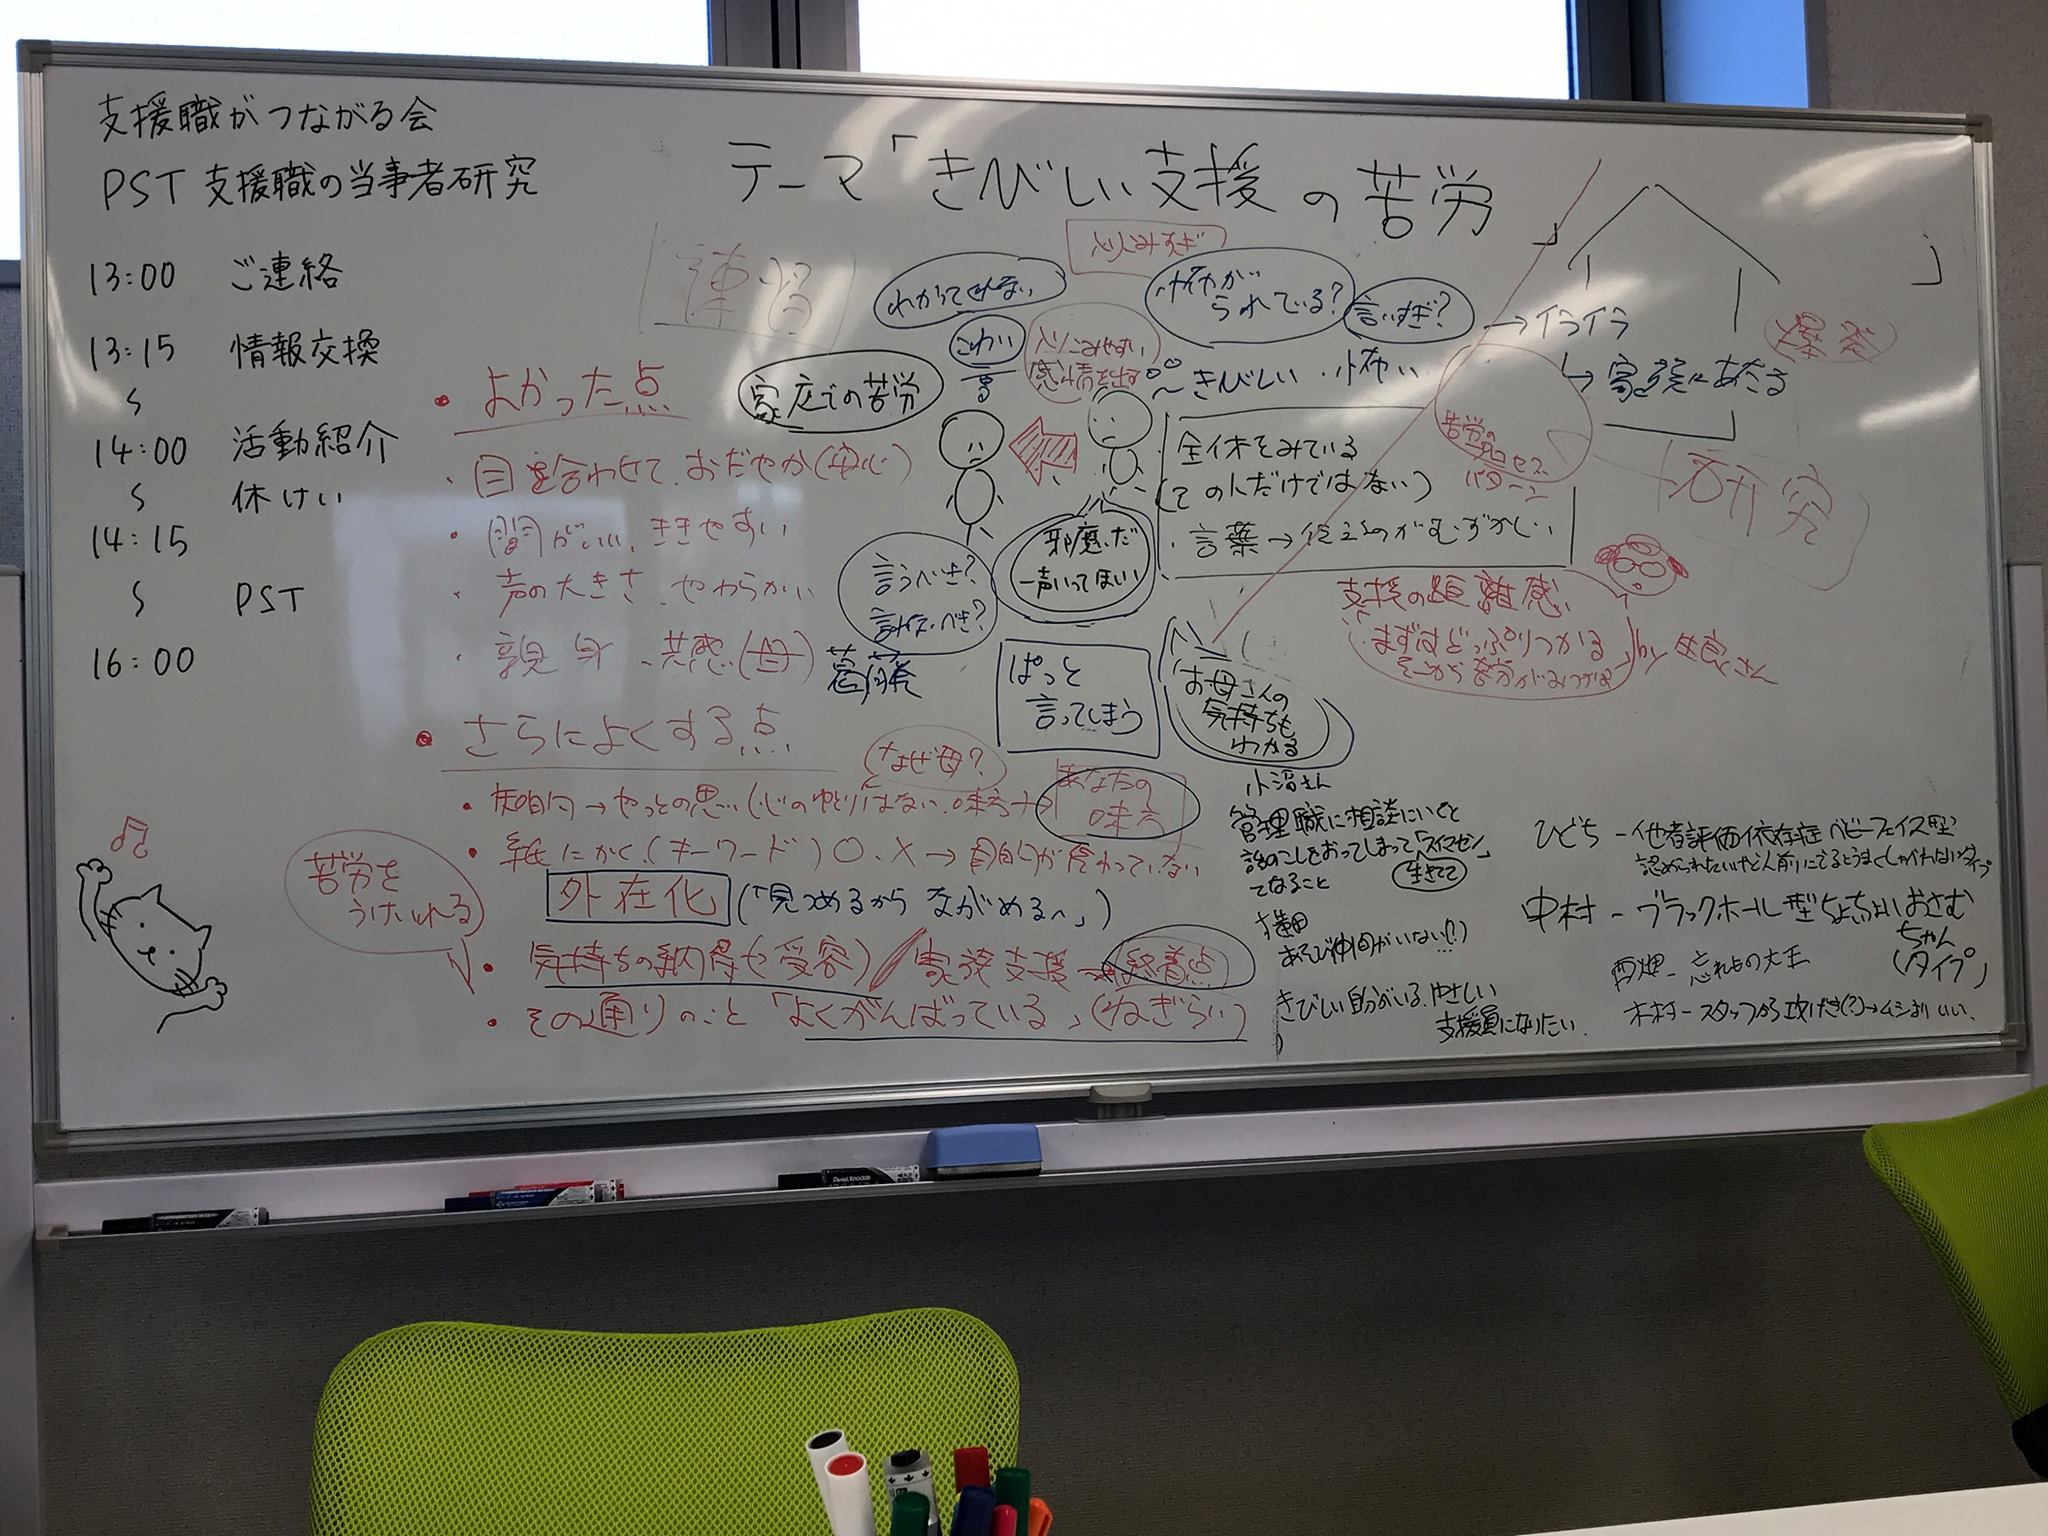 支援職がつながる会
PST 支援職の当事者研究
13:00 ご連絡
13:15 情報交換
〜
14:00 活動紹介
〜 休けい
14:15
〜 PST
16:00
テーマ「きびしい支援の苦労
」
練習
わかってくれない
こわい
感情を出す
怖がられている?
言いすぎ?
→イライラ
↳家族にあたる
爆発
きびしい・怖い
家庭での苦労
全体をみている
(その人だけではない)
言葉→伝えるのがむずかしい
苦労の
プロセス
パターン
研究
邪魔だ
一声いってほしい
言うべき?
葛藤
ぱっと
言ってしまう
お母さんの
気持ちも
わかる
支援の距離感
まずはどっぷりつかる
そこから苦労が
by
・よかった点
・目を合わせて、おだやか(安心)
・間がいい、ききやすい
・声の大きさ、やわらかい
・親身、共感(母)
・さらによくする点
なぜ母?
あなたの
味方
・紙にかく(キーワード)○、×→目的が
外在化(「見つめるからながめるへ」)
苦労を
うけいれる
・気持ちの納得や受容)/家族支援
・その通りのこと「よくがんばっている」(ねぎらい)
小沼さん
管理職に相談にいくと
話のこしをおってしまって「スイマセン」
てなること
生きてて
あそび仲間がいない(?)
きびしい自分がいる、やさしい
支援員になりたい。
他者評価依存症 ベビーフェイス型
中村－ブラックホール型ちょちょいおさむ
ちゃん
(タイプ)
忘れもの大王
木村－スタッフから